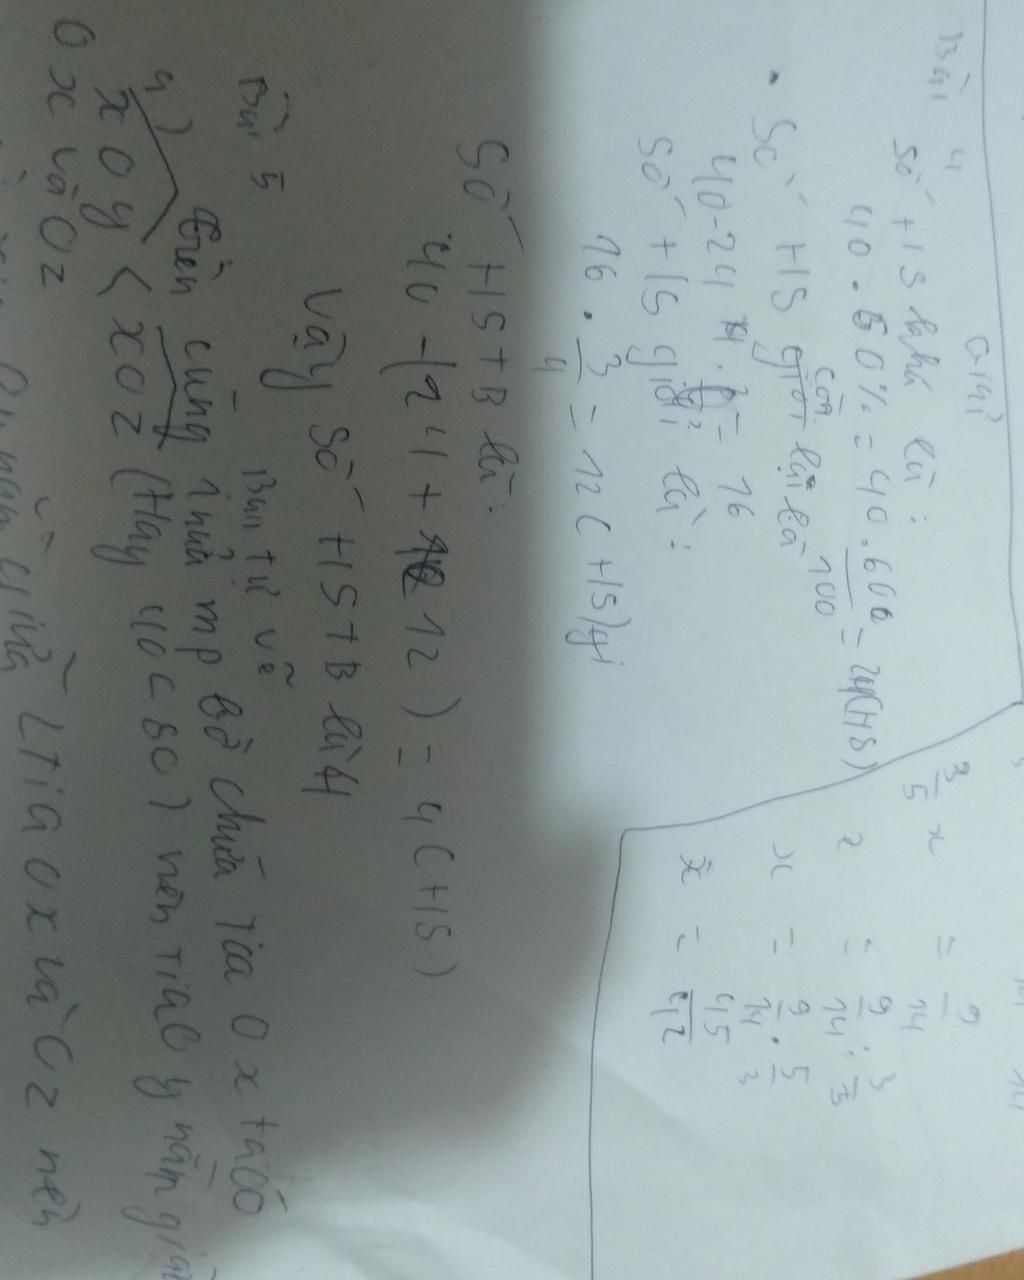 Giải
Bài 4
Số HS khá là:
40 . 60% = 40 . 60 / 100 = 24 (HS)
Số HS còn lại là
40 - 24 = 16
Số HS giỏi là:
16 . 3/4 = 12 (HS)
Số HS TB là:
40 - (24 + 12) = 4 (HS)
Vậy số HS TB là 4
Bài 5
Bạn tự vẽ
a) Trên cùng 1 nửa mp bờ chứa tia Ox ta có
xOy < xOz (Hay 40 < 80) nên tia Oy nằm giữa
Ox và Oz
nằm giữa 2 tia Ox và Oz nên
3/5 x = 9/14
x = 9/14 : 3/5
x = 9/14 . 5/3
x = 45/42